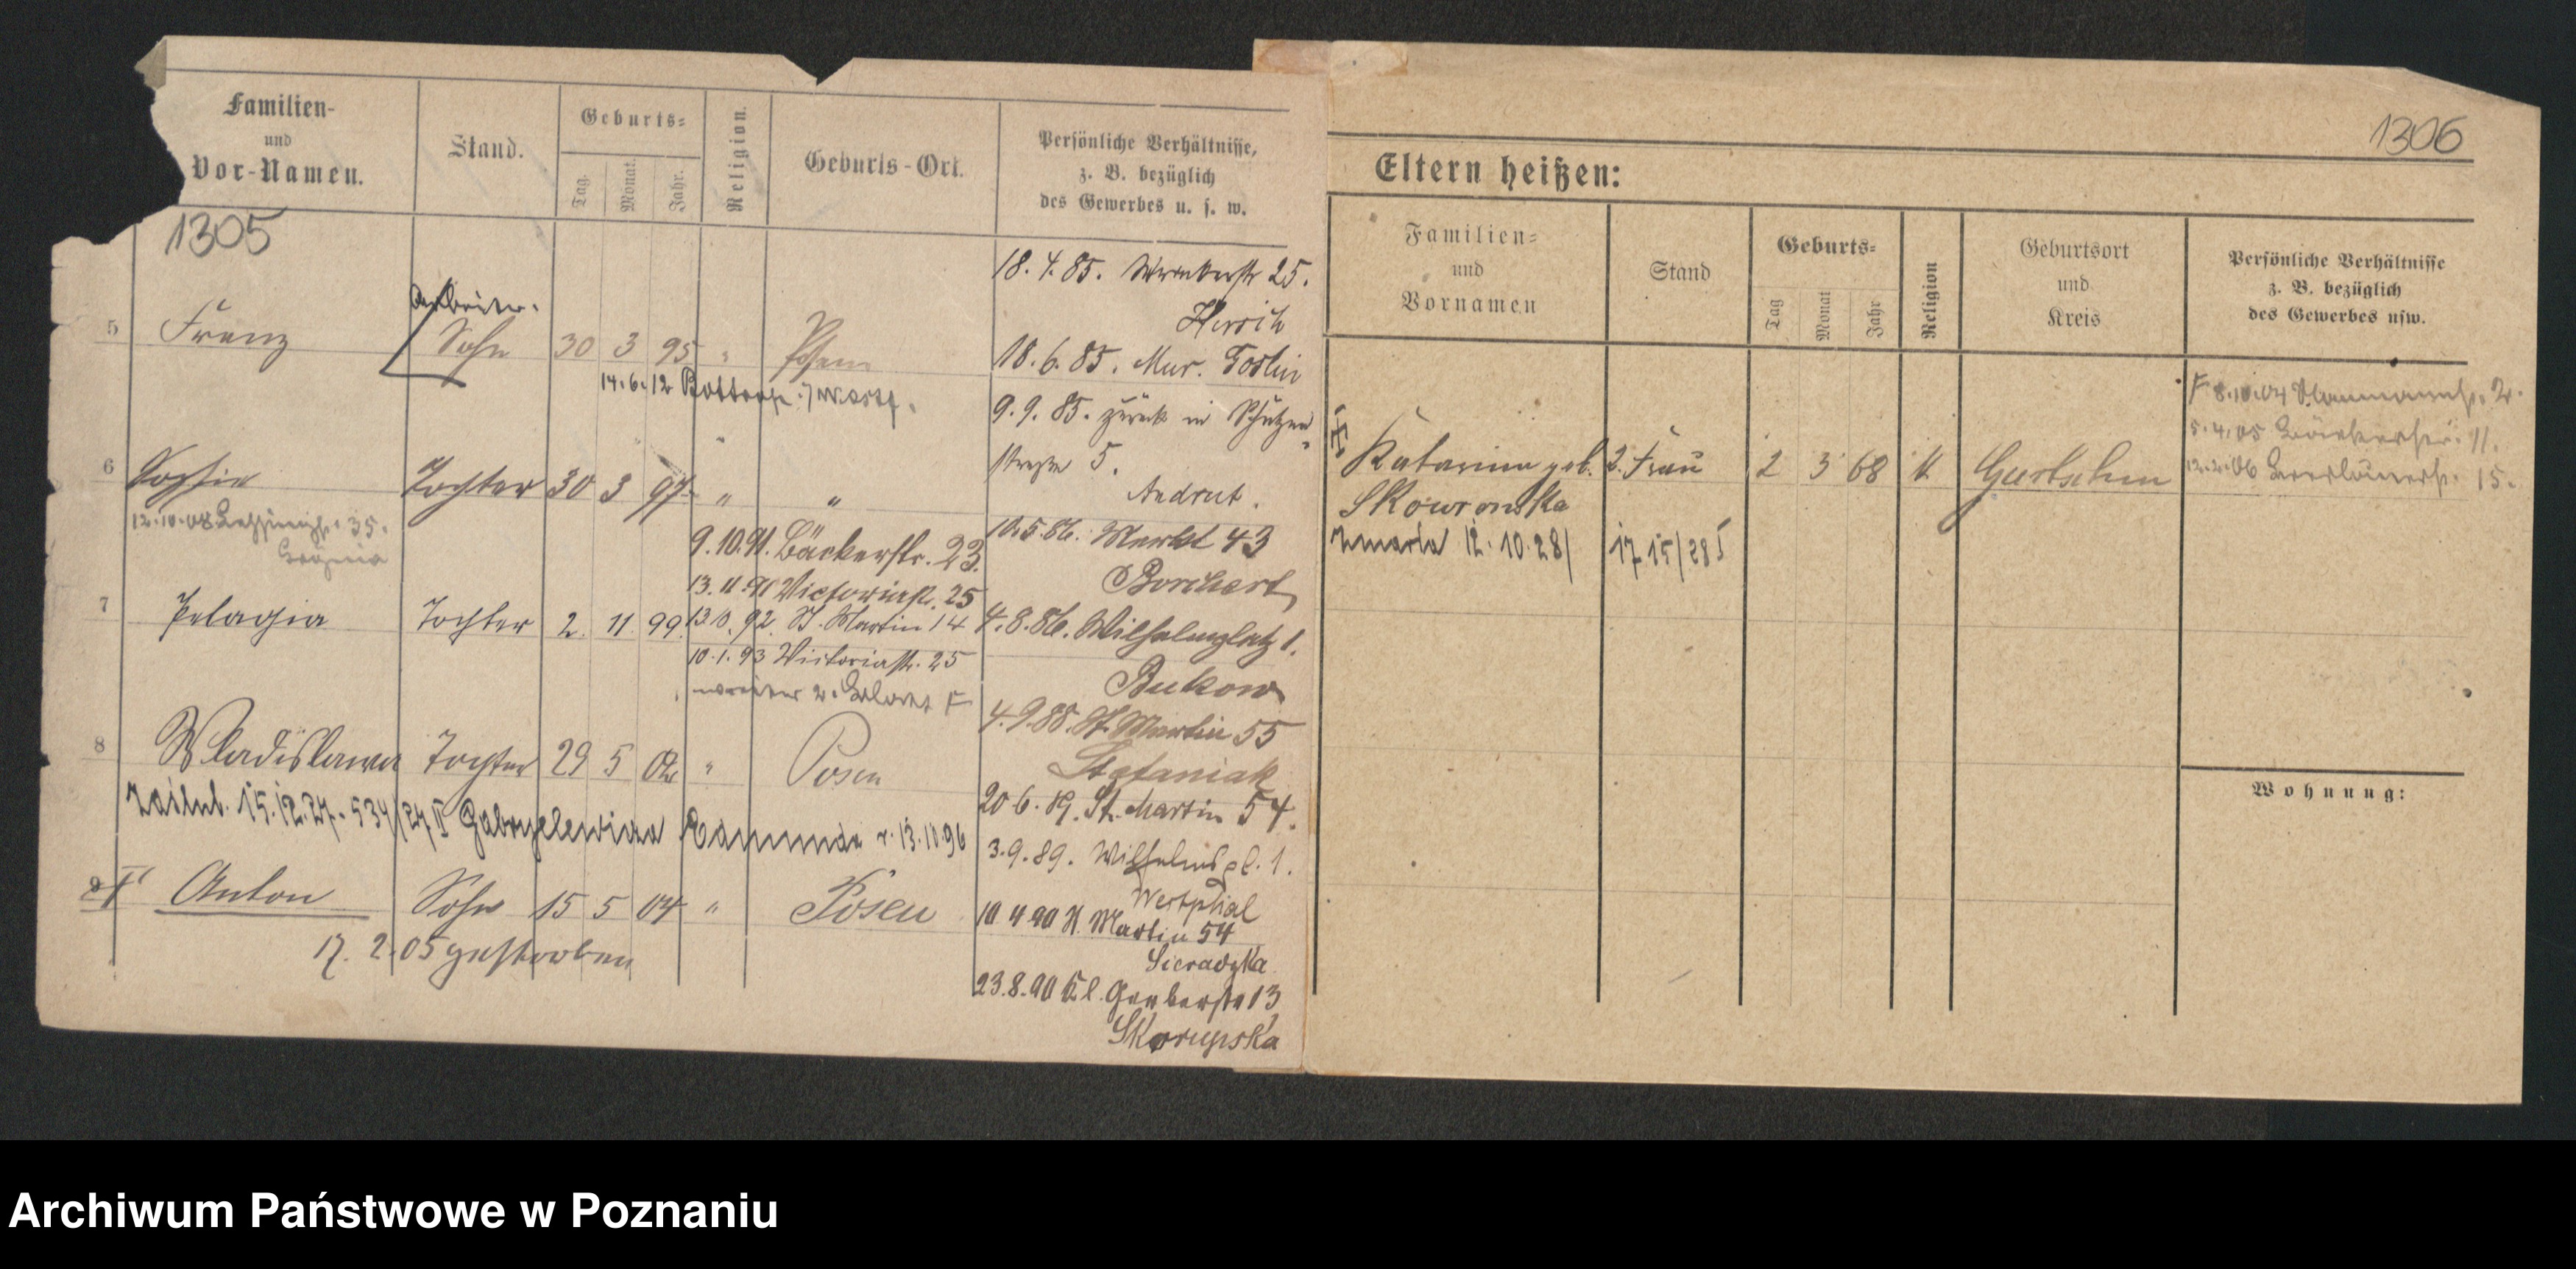 Familien-
und
Vor-Namen.
Stand.
Geburts-
Tag.
Monat.
Jahr.
Religion.
Geburts-Ort.
Persönliche Verhältnisse,
z. B. bezüglich
des Gewerbes u. s. w.
1305
5 Franz Arbeiter. Sohn 30 3 95 " Posen
14.6.12 Bottrop i/Westf.
6 Sophie Tochter 30 3 97 " "
12.10.08 35.
7 Pelagia Tochter 2. 11 99.
8 Wladislawa Tochter 29 5 02 " Posen
15.12.27. 534/27 II r. 13.10.96
9 Anton Sohn 15 5 04 " Posen
17. 2. 05 gestorben
9.10.91. Bäckerstr. 23.
13.11.91 Victoriastr. 25
92. St. Martin 14
10.1.93 Victoriastr. 25
18.4.85. 25.
18.6.85. Mur. Goslin
9.9.85. zurück in Schützen
straße 5.
Andrut.
Markt 43
Borchert
4.8.86. Wilhelmplatz 1.
Bukow
4.9.88. St. Martin 55
Stefaniak
20.6.89. St. Martin 54.
3.9.89. Wilhelmspl. 1.
Westphal
10 4 90 St. Martin 54
Sieradzka
23.8.90 Kl. Gerberstr 13
Skorupska
1306
Eltern heißen:
Familien-
und
Vornamen
Stand
Geburts-
Tag
Monat
Jahr
Religion
Geburtsort
und
Kreis
Persönliche Verhältnisse
z. B. bezüglich
des Gewerbes usw.
Katarina geb. 2. Frau 2 3 68 k
Skowronska
zmarła 12.10.28/ 1715/28 I
8.10.04 2.
5.4.05 11.
12.2.06 15.
Wohnung:
Archiwum Państwowe w Poznaniu